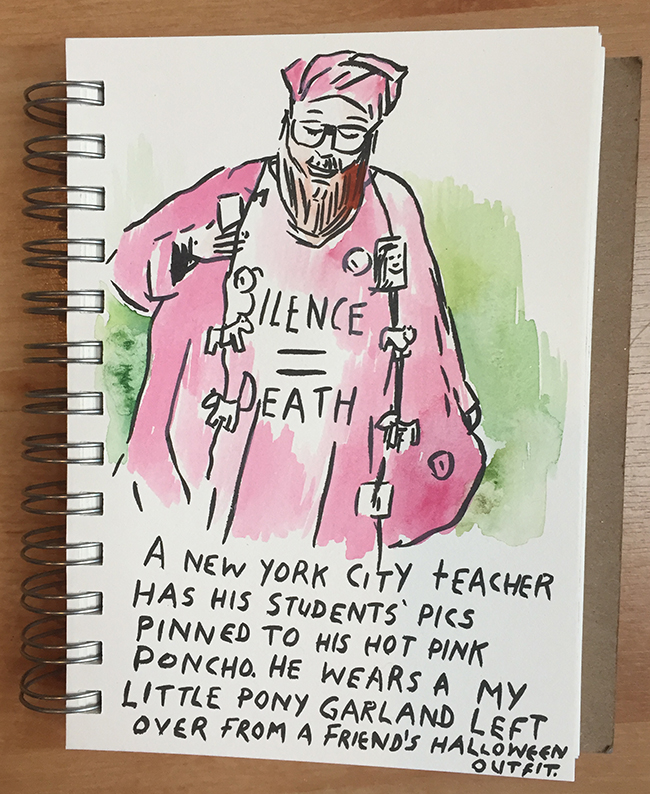 SILENCE
=
DEATH
A NEW YORK CITY tEACHER
HAS HIS STUDENTS' PICS
PINNED TO HIS HOT PINK
PONCHO. HE WEARS A MY
LITTLE PONY GARLAND LEFT
OVER FROM A FRIEND'S HALLOWEEN
OUTFIT.